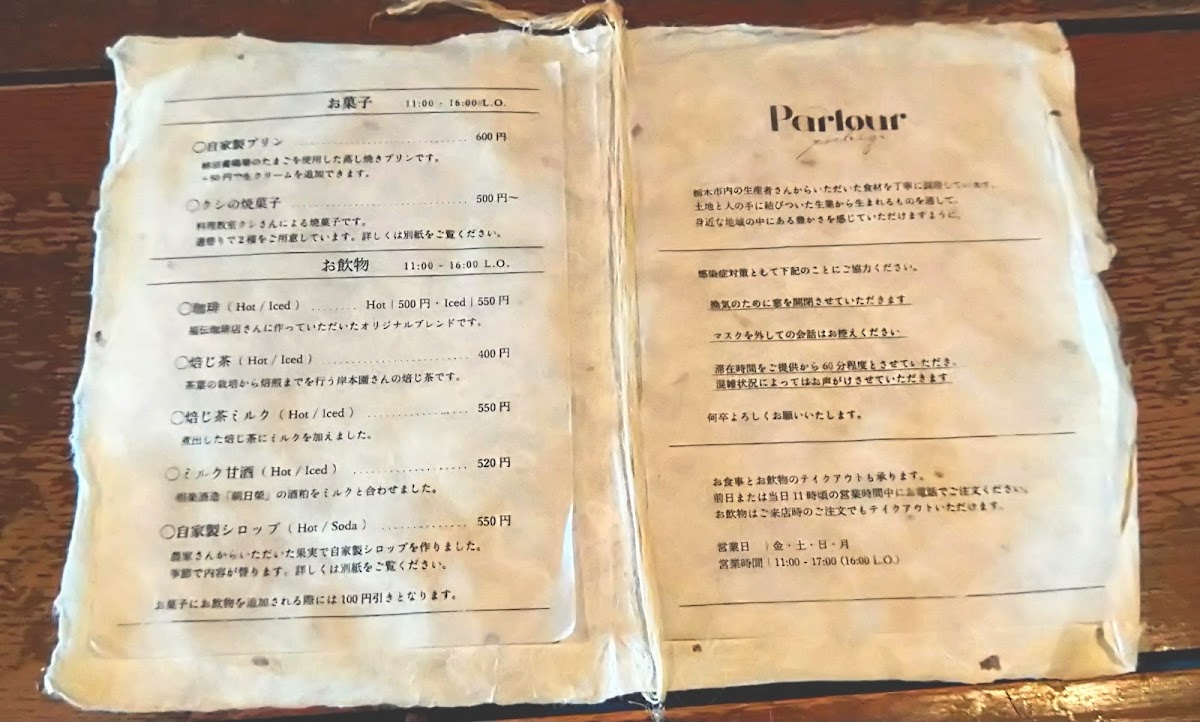 お菓子 11:00 - 16:00 L.O.
◯自家製プリン 600円
のたまごを使用した蒸し焼きプリンです。
+50円で生クリームを追加できます。
◯クシの焼菓子 500円〜
料理教室クシさんによる焼菓子です。
週替りで2種をご用意しています。詳しくは別紙をご覧ください。
お飲物 11:00 - 16:00 L.O.
◯珈琲 ( Hot / Iced ) ........ Hot | 500円・Iced | 550円
珈琲店さんに作っていただいたオリジナルブレンドです。
◯焙じ茶 ( Hot / Iced ) 400円
茶葉の栽培から焙煎までを行う岸本園さんの焙じ茶です。
◯焙じ茶ミルク ( Hot / Iced ) 550円
煮出した焙じ茶にミルクを加えました。
◯ミルク甘酒 ( Hot / Iced ) 520円
相楽酒造「朝日榮」の酒粕をミルクと合わせました。
◯自家製シロップ ( Hot / Soda ) 550円
農家さんからいただいた果実で自家製シロップを作りました。
季節で内容が替ります。詳しくは別紙をご覧ください。
お菓子にお飲物を追加される際には100円引きとなります。
Parlour
tochigi
栃木市内の生産者さんからいただいた食材を丁寧に調理しています。
土地と人の手に結びついた生業から生まれるものを通して、
身近な地域の中にある豊かさを感じていただけますように。
感染症対策として下記のことにご協力ください。
換気のために窓を開閉させていただきます
マスクを外しての会話はお控えください
滞在時間をご提供から60分程度とさせていただき、
混雑状況によってはお声がけさせていただきます
何卒よろしくお願いいたします。
お食事とお飲物のテイクアウトも承ります。
前日または当日11時頃の営業時間中にお電話でご注文ください。
お飲物はご来店時のご注文でもテイクアウトいただけます。
営業日 | 金・土・日・月
営業時間 | 11:00 - 17:00 (16:00 L.O.)